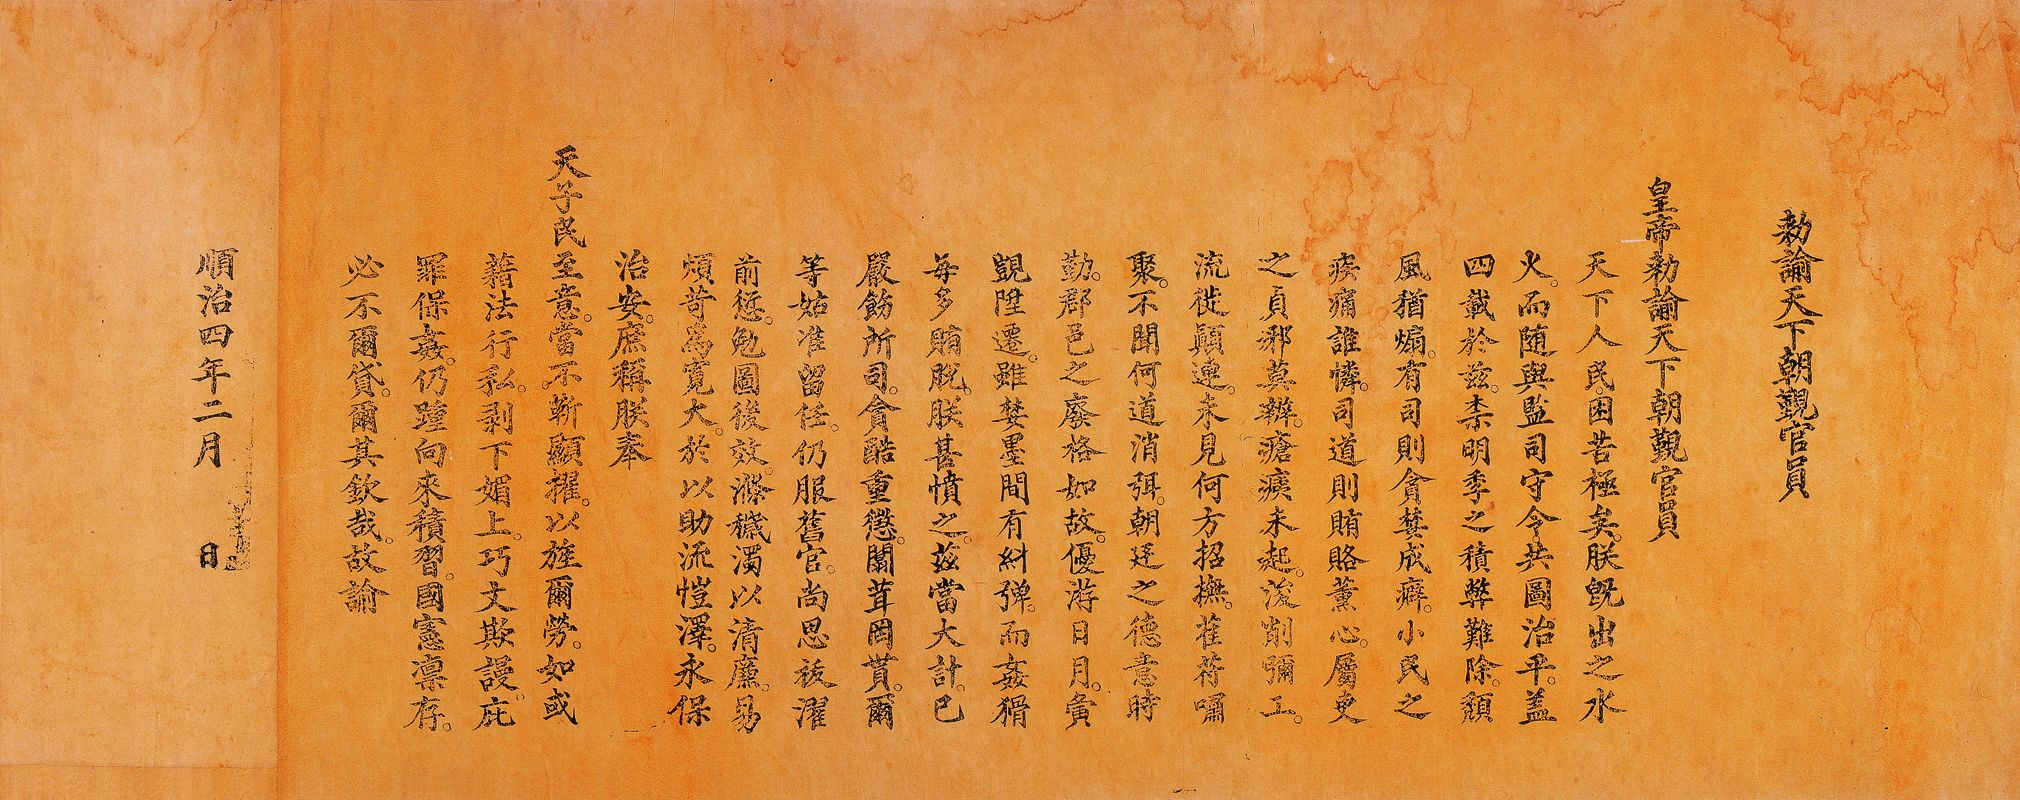 勅諭天下朝覲官員
皇帝勅諭天下朝覲官員
天下人民。困苦極矣。朕既出之水
火。而随與監司守令。共圖治平。盖
四載於茲。柰明季之積弊難除。頽
風猶煽。有司則貪婪成癖。小民之
疾痛誰憐。司道則賄賂薰心。屬吏
之貞邪莫辨。瘡痍未起。浚削彌工。
流徙顛連。未見何方招撫。萑苻嘯
聚。不聞何道消弭。朝廷之德意時
勤。郡邑之廢格如故。優游日月。夤
覬陞遷。雖婪墨間有糾彈。而姦猾
每多賄脫。朕甚憤之。茲當大計。已
嚴飭所司。貪酷重懲。闒茸罔貰。爾
等姑准留任。仍服舊官。尚思祓濯
前愆。勉圖後效。滌穢濁以清廉。易
煩苛爲寬大。於以助流愷澤。永保
治安。庶稱朕奉
天子民至意。當不靳顯擢。以旌爾勞。如或
藉法行私。剥下媚上。巧文欺謾。庇
罪保姦。仍踵向來積習。國憲凛存。
必不爾貸。爾其欽哉。故諭
順治四年二月 日